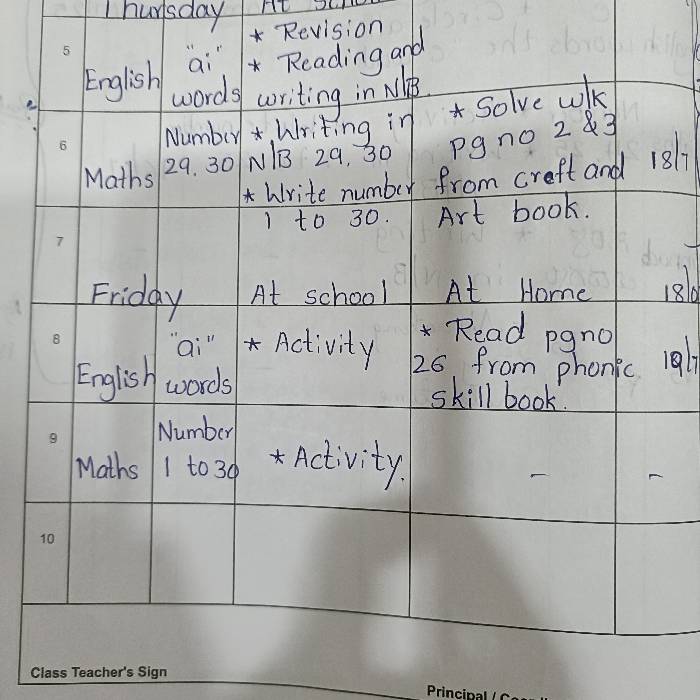 Thursday At School
5 English "ai" words * Revision
* Reading and
writing in N/B.
6 Maths Number 29, 30 * Writing in
N/B 29, 30
* Write number
1 to 30.
* Solve w/k
pg no 2 & 3
from craft and
Art book.
18/7
7 Friday At school At Home
8 English "ai" words * Activity
* Read pg no
26 from phonic
skill book.
9 Maths Number
1 to 30 * Activity. - -
10
Class Teacher's Sign
Principal /